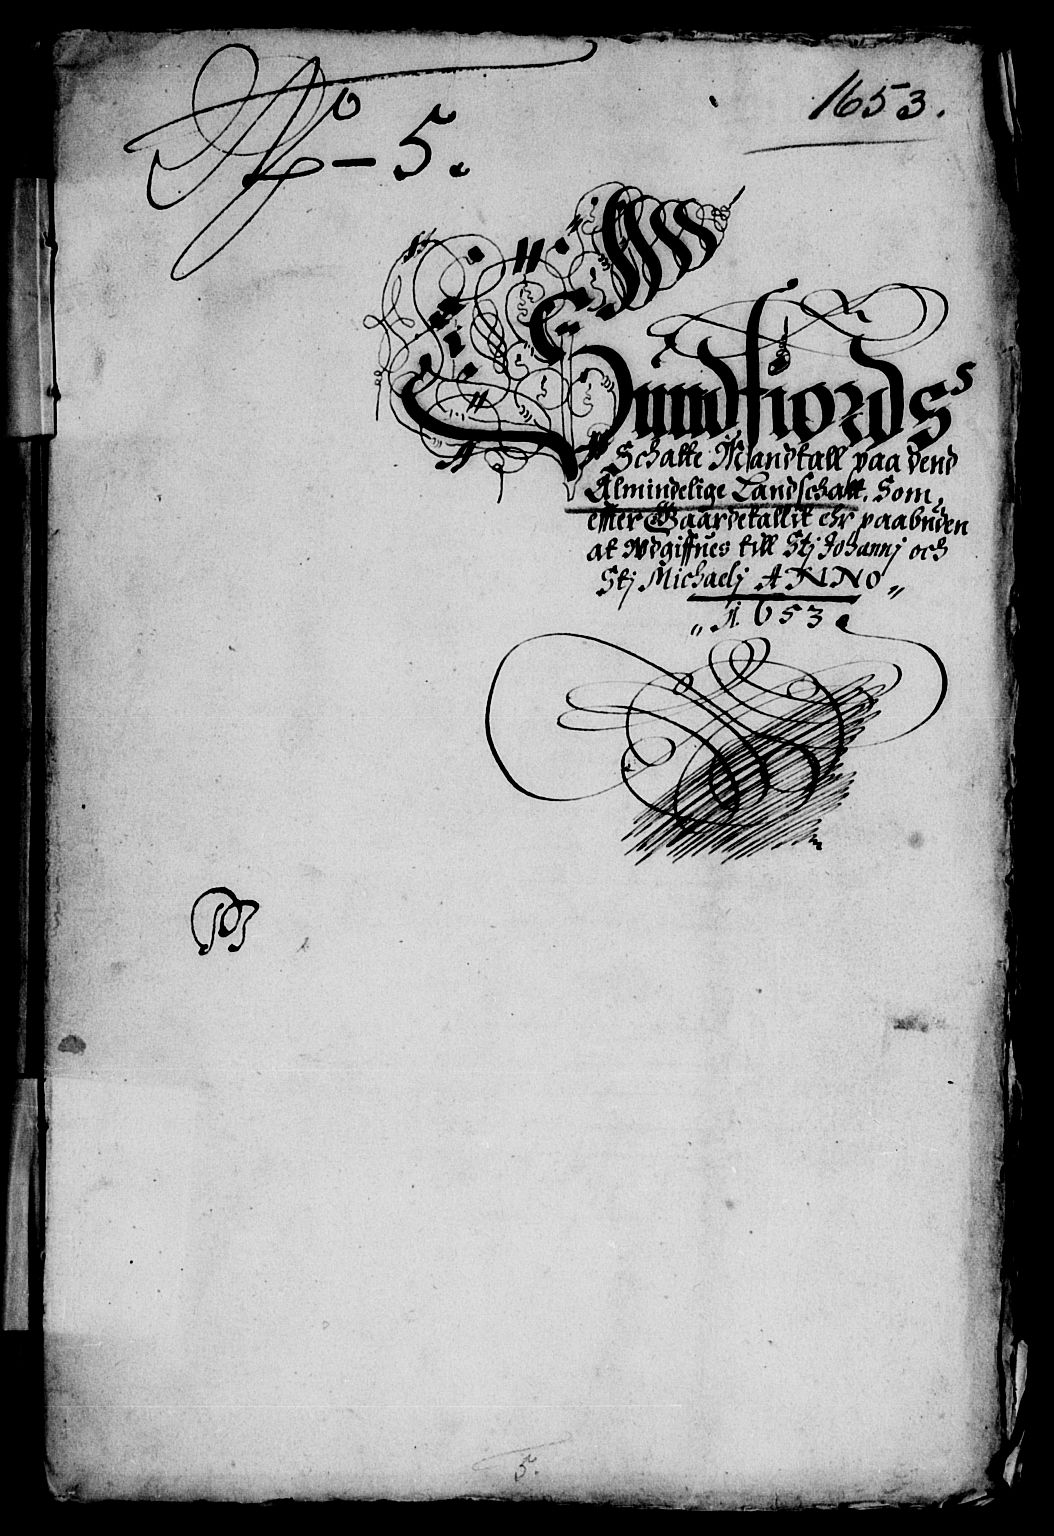 No 5.
1653.
Sundfiords
Schatte Mandtall paa dend
Almindelige Landschatt, Som
effter Gaardetallit ehr paabuden
at Wdgiffues till Stj Johannj och
Stj Michaelj ANNO
1653
5.